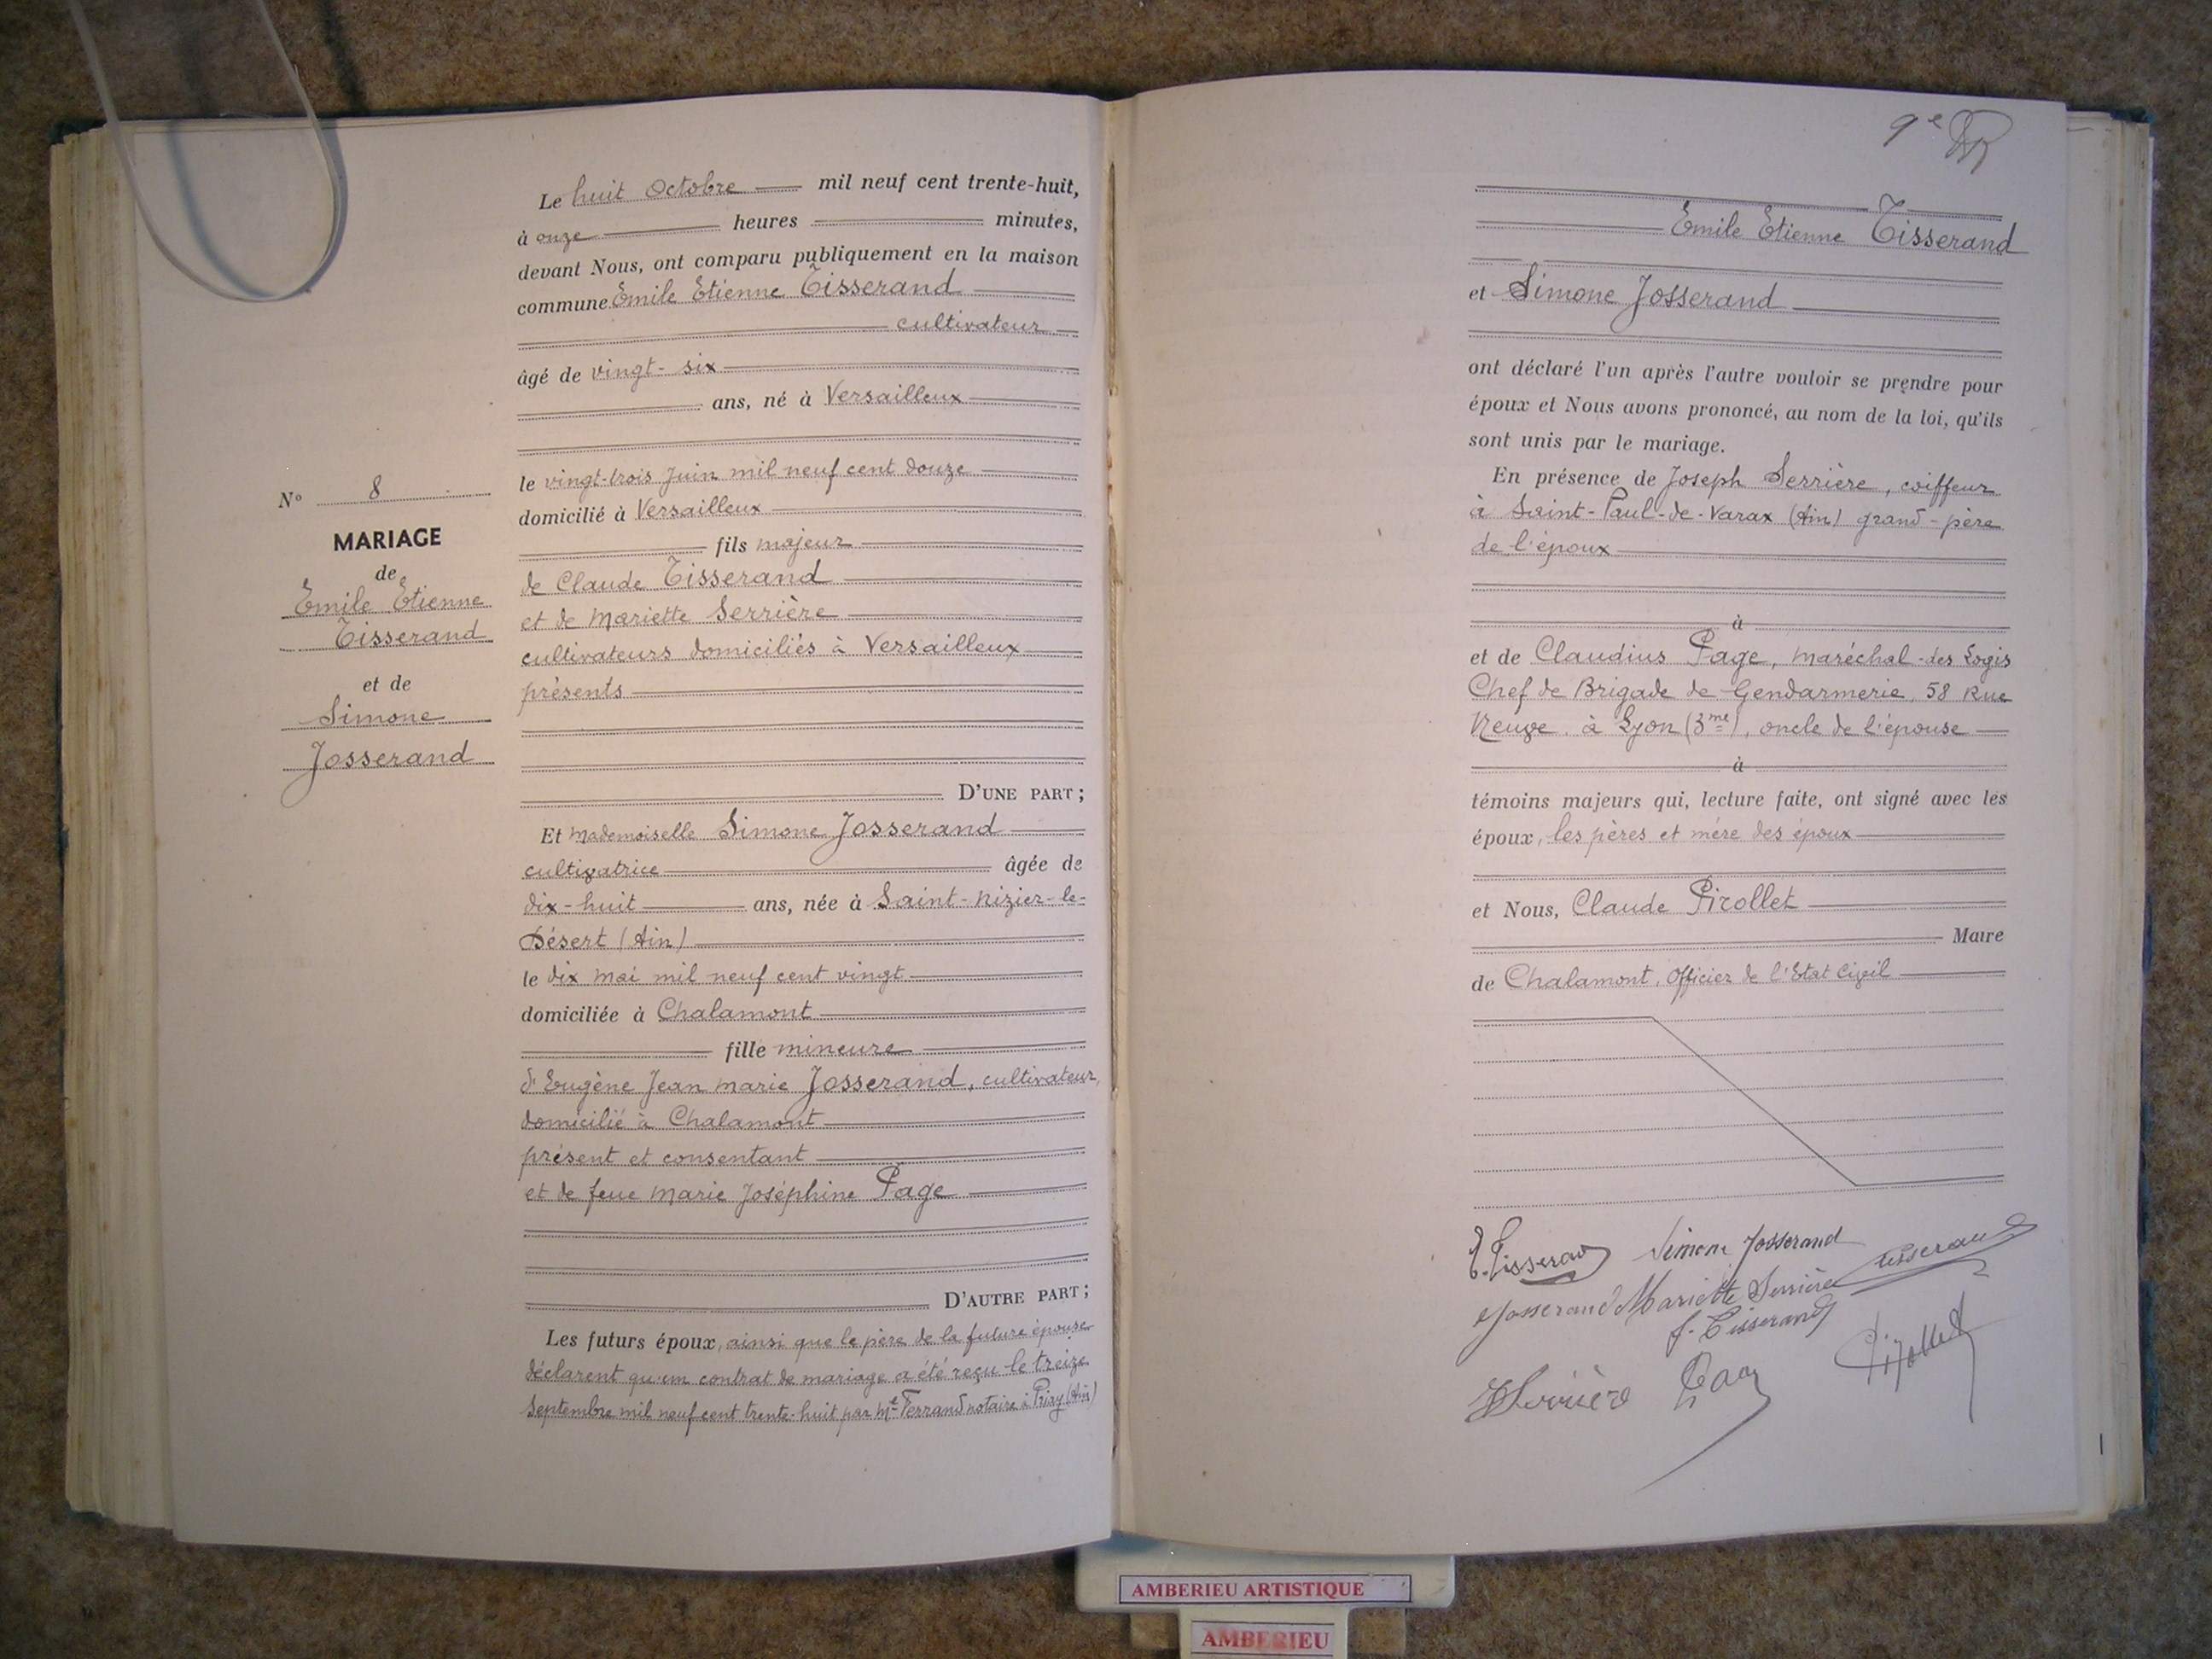 Le huit Octobre mil neuf cent trente-huit,
à onze heures minutes,
devant Nous, ont comparu publiquement en la maison
commune Emile Etienne Tisserand
cultivateur
âgé de vingt-six
ans, né à Versailleux
le vingt-trois Juin mil neuf cent douze
domicilié à Versailleux
fils majeur
de Claude Tisserand
et de Mariette Serrière
cultivateurs domiciliés à Versailleux
présents
D'UNE PART ;
Et Mademoiselle Simone Josserand
cultivatrice âgée de
dix-huit ans, née à Saint-Nizier-le-
Désert (Ain)
le dix Mai mil neuf cent vingt
domiciliée à Chalamont
fille mineure
d'Eugène Jean Marie Josserand, cultivateur,
domicilié à Chalamont
présent et consentant
et de feue Marie Joséphine Page
D'AUTRE PART ;
Les futurs époux, ainsi que le père de la future épouse
déclarent qu'un contrat de mariage a été reçu le treize
Septembre mil neuf cent trente-huit par Me Ferrand notaire à Priay (Ain)
N° 8
MARIAGE
de
Emile Etienne
Tisserand
et de
Simone
Josserand
9e
Emile Etienne Tisserand
et Simone Josserand
ont déclaré l'un après l'autre vouloir se prendre pour
époux et Nous avons prononcé, au nom de la loi, qu'ils
sont unis par le mariage.
En présence de Joseph Serrière, coiffeur
à Saint-Paul-de-Varax (Ain) grand-père
de l'époux
à
et de Claudius Page, Maréchal-des Logis
Chef de Brigade de Gendarmerie, 58 Rue
Neuve à Lyon (3me), oncle de l'épouse
à
témoins majeurs qui, lecture faite, ont signé avec les
époux, les pères et mère des époux
et Nous, Claude Pirollet
Maire
de Chalamont, Officier de l'Etat Civil
E. Tisserand Simone Josserand
Josserand Mariette Serrière Tisserand
f. Tisserand
Serrière Page Pirollet
AMBERIEU ARTISTIQUE
AMBERIEU